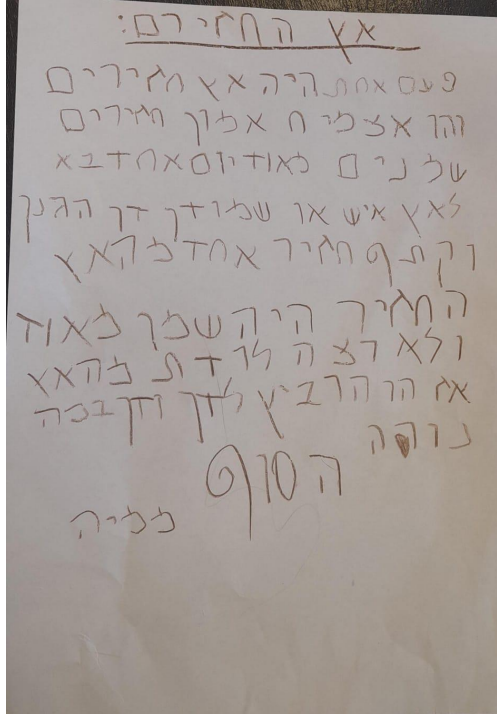 אץ החגירם:
פעם אחת היה אץ חגירים
והו אצמי ח אמון חגירים
שמ נים מאוד יום אחד בא
לאץ איש או שמו דך דך הגנן
וקתף חגיר אחד מהאץ
החגיר היה שמן מאוד
ולא רצה לרדת מהאץ
אז הו הרביץ לדך ודך במה
נורה
הסוף
ממיה